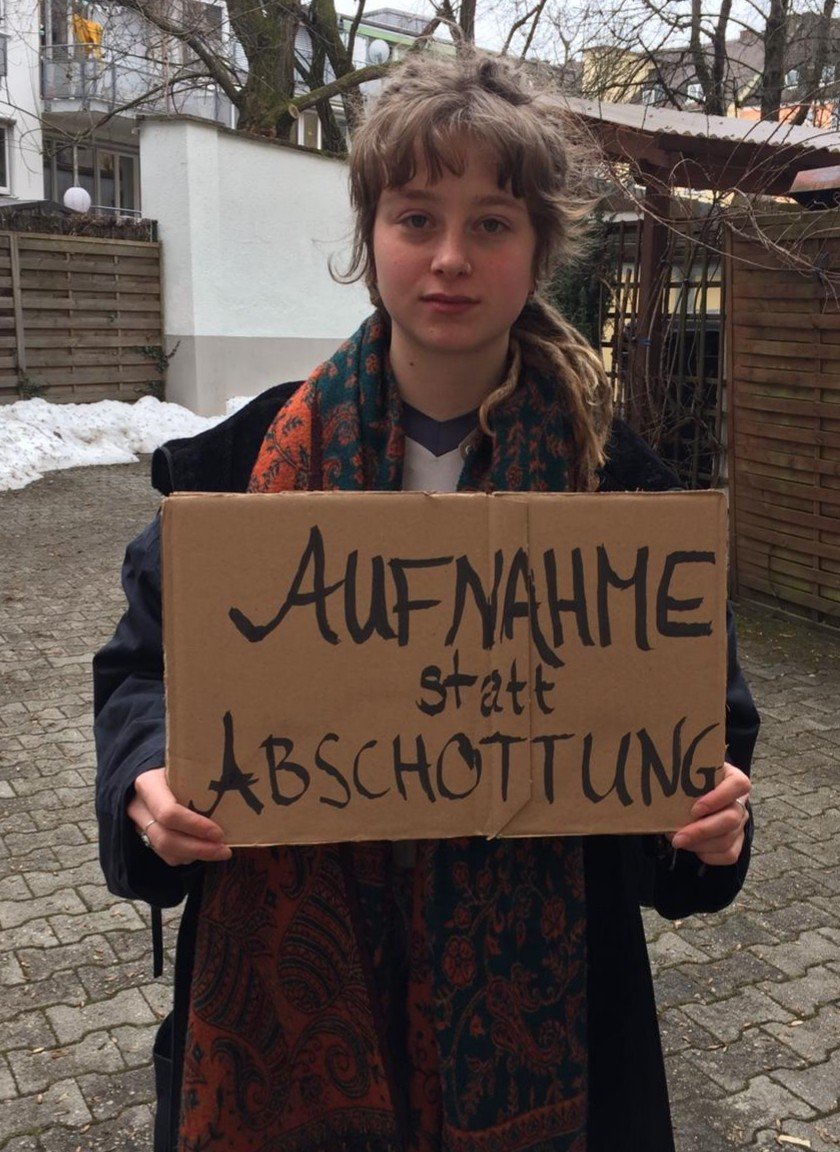 AUFNAHME
statt
ABSCHOTTUNG